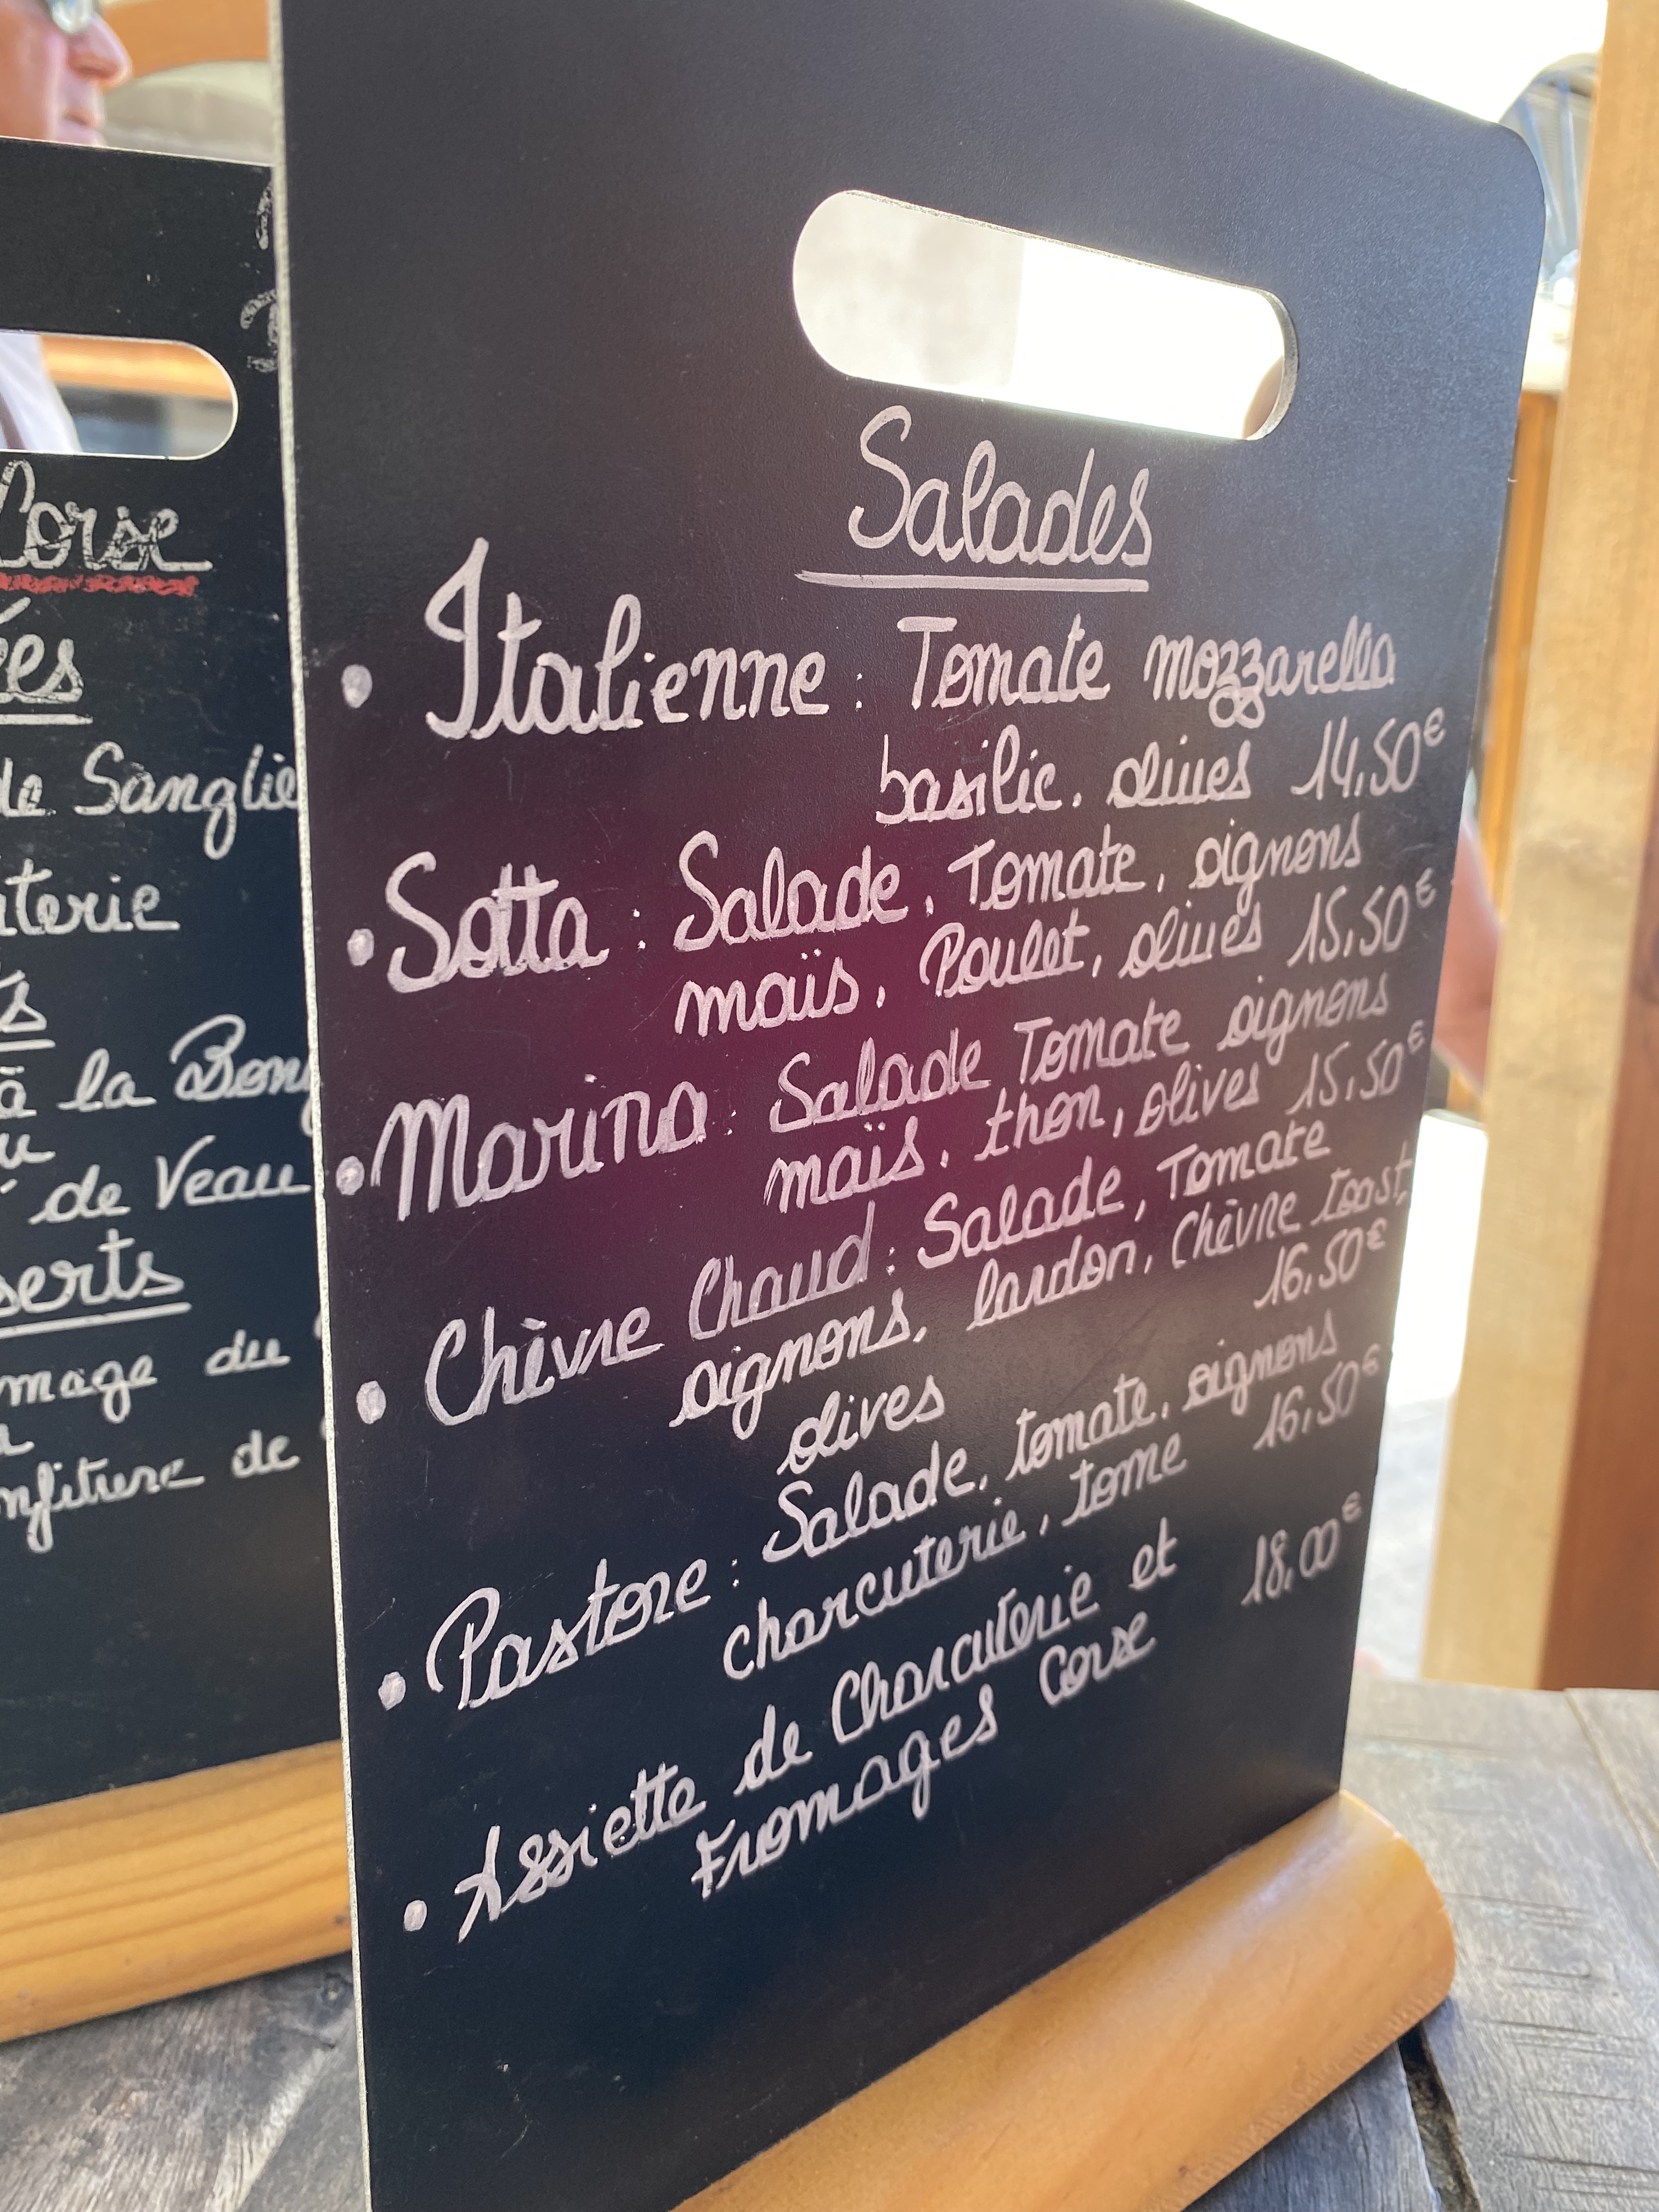 Corse
de Sanglie
terie
à la Bon
de Veau
serts
mage du
nfiture de
Salades
• Italienne : Tomate mozzarella
basilic, olives 14,50€
• Sotta : Salade, Tomate, oignons
maïs, Poulet, olives 15,50€
• Marina : Salade, Tomate oignons
maïs, thon, olives 15,50€
• Chèvre Chaud : Salade, Tomate
oignons, lardon, chèvre toast,
olives 16,50€
• Pastore : Salade, tomate, oignons
charcuterie, tome 16,50€
• Assiette de Charcuterie et
Fromages Corse 18,00€